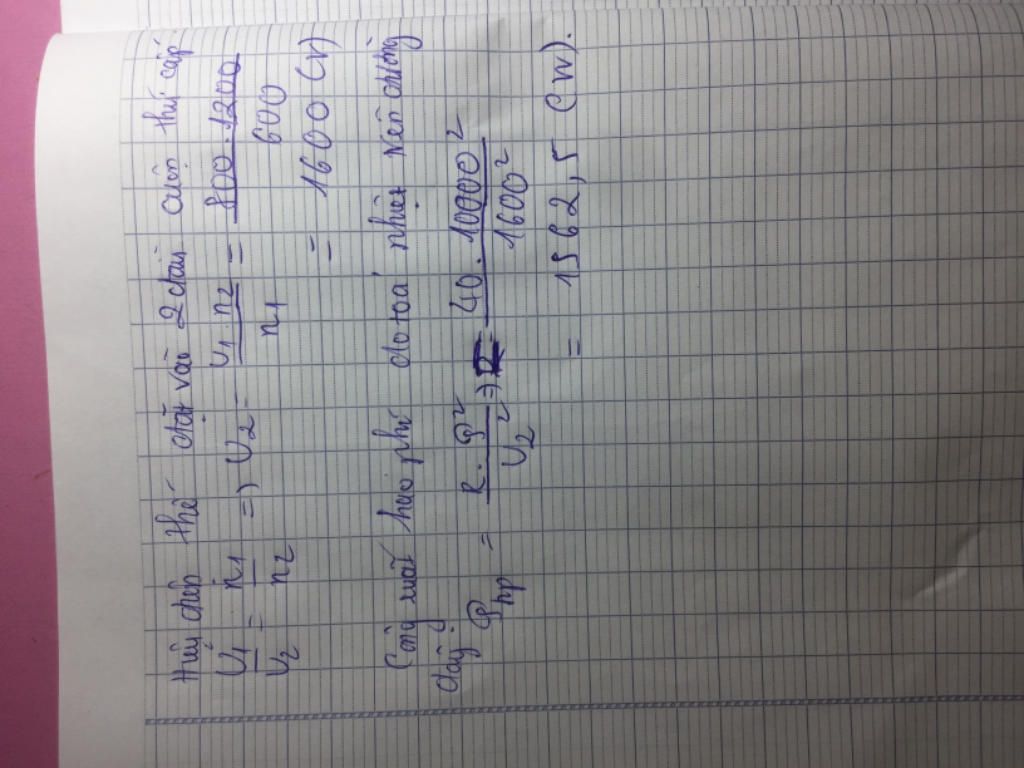 Hiệu điện thế đặt vào 2 đầu cuộn thứ cấp
U₁/U₂ = n₁/n₂ => U₂ = U₁.n₂/n₁ = 800.1200/600
= 1600 (V)
Công suất hao phí do toả nhiệt trên đường
dây
𝒫hp = R.𝒫²/U₂² => = 40.10000²/1600²
= 1562,5 (W).